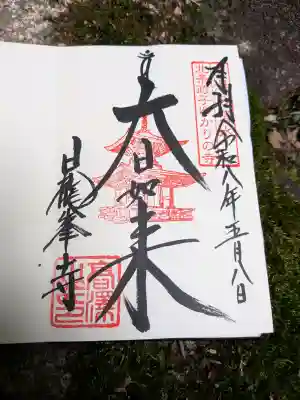 奉拝 令和八年五月八日
北条政子ゆかりの寺
大日如来
日龍峯寺
高澤